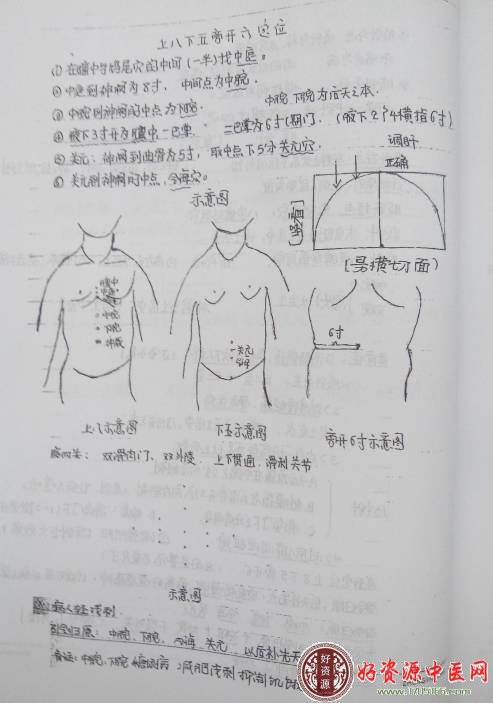 上八下五旁开六定位
① 在膻中与鸠尾穴的中间(一半)找中庭。
② 中庭到神阙为8寸, 中间点为中脘。
③ 中脘到神阙的中点为下脘.
中脘 下脘为后天之本.
④ 腋下3寸开及膻中一巴掌. 二巴掌为6寸(期门. (腋下2个4横指6寸)
⑤ 关元: 神阙到曲骨为5寸, 取中点下5分关元穴.
⑥ 关元到神阙的中点, 气海穴。
示意图
调肝
正确
(易横切面)
膻中
中脘
下脘
神阙
关元
6寸
上八示意图
下五示意图
旁开6寸示意图
腹四关: 双滑肉门, 双外陵 上下贯通, 滑利关节
示意图
引气归原: 中脘、下脘、气海、关元. 以后补先天
好资源中医网